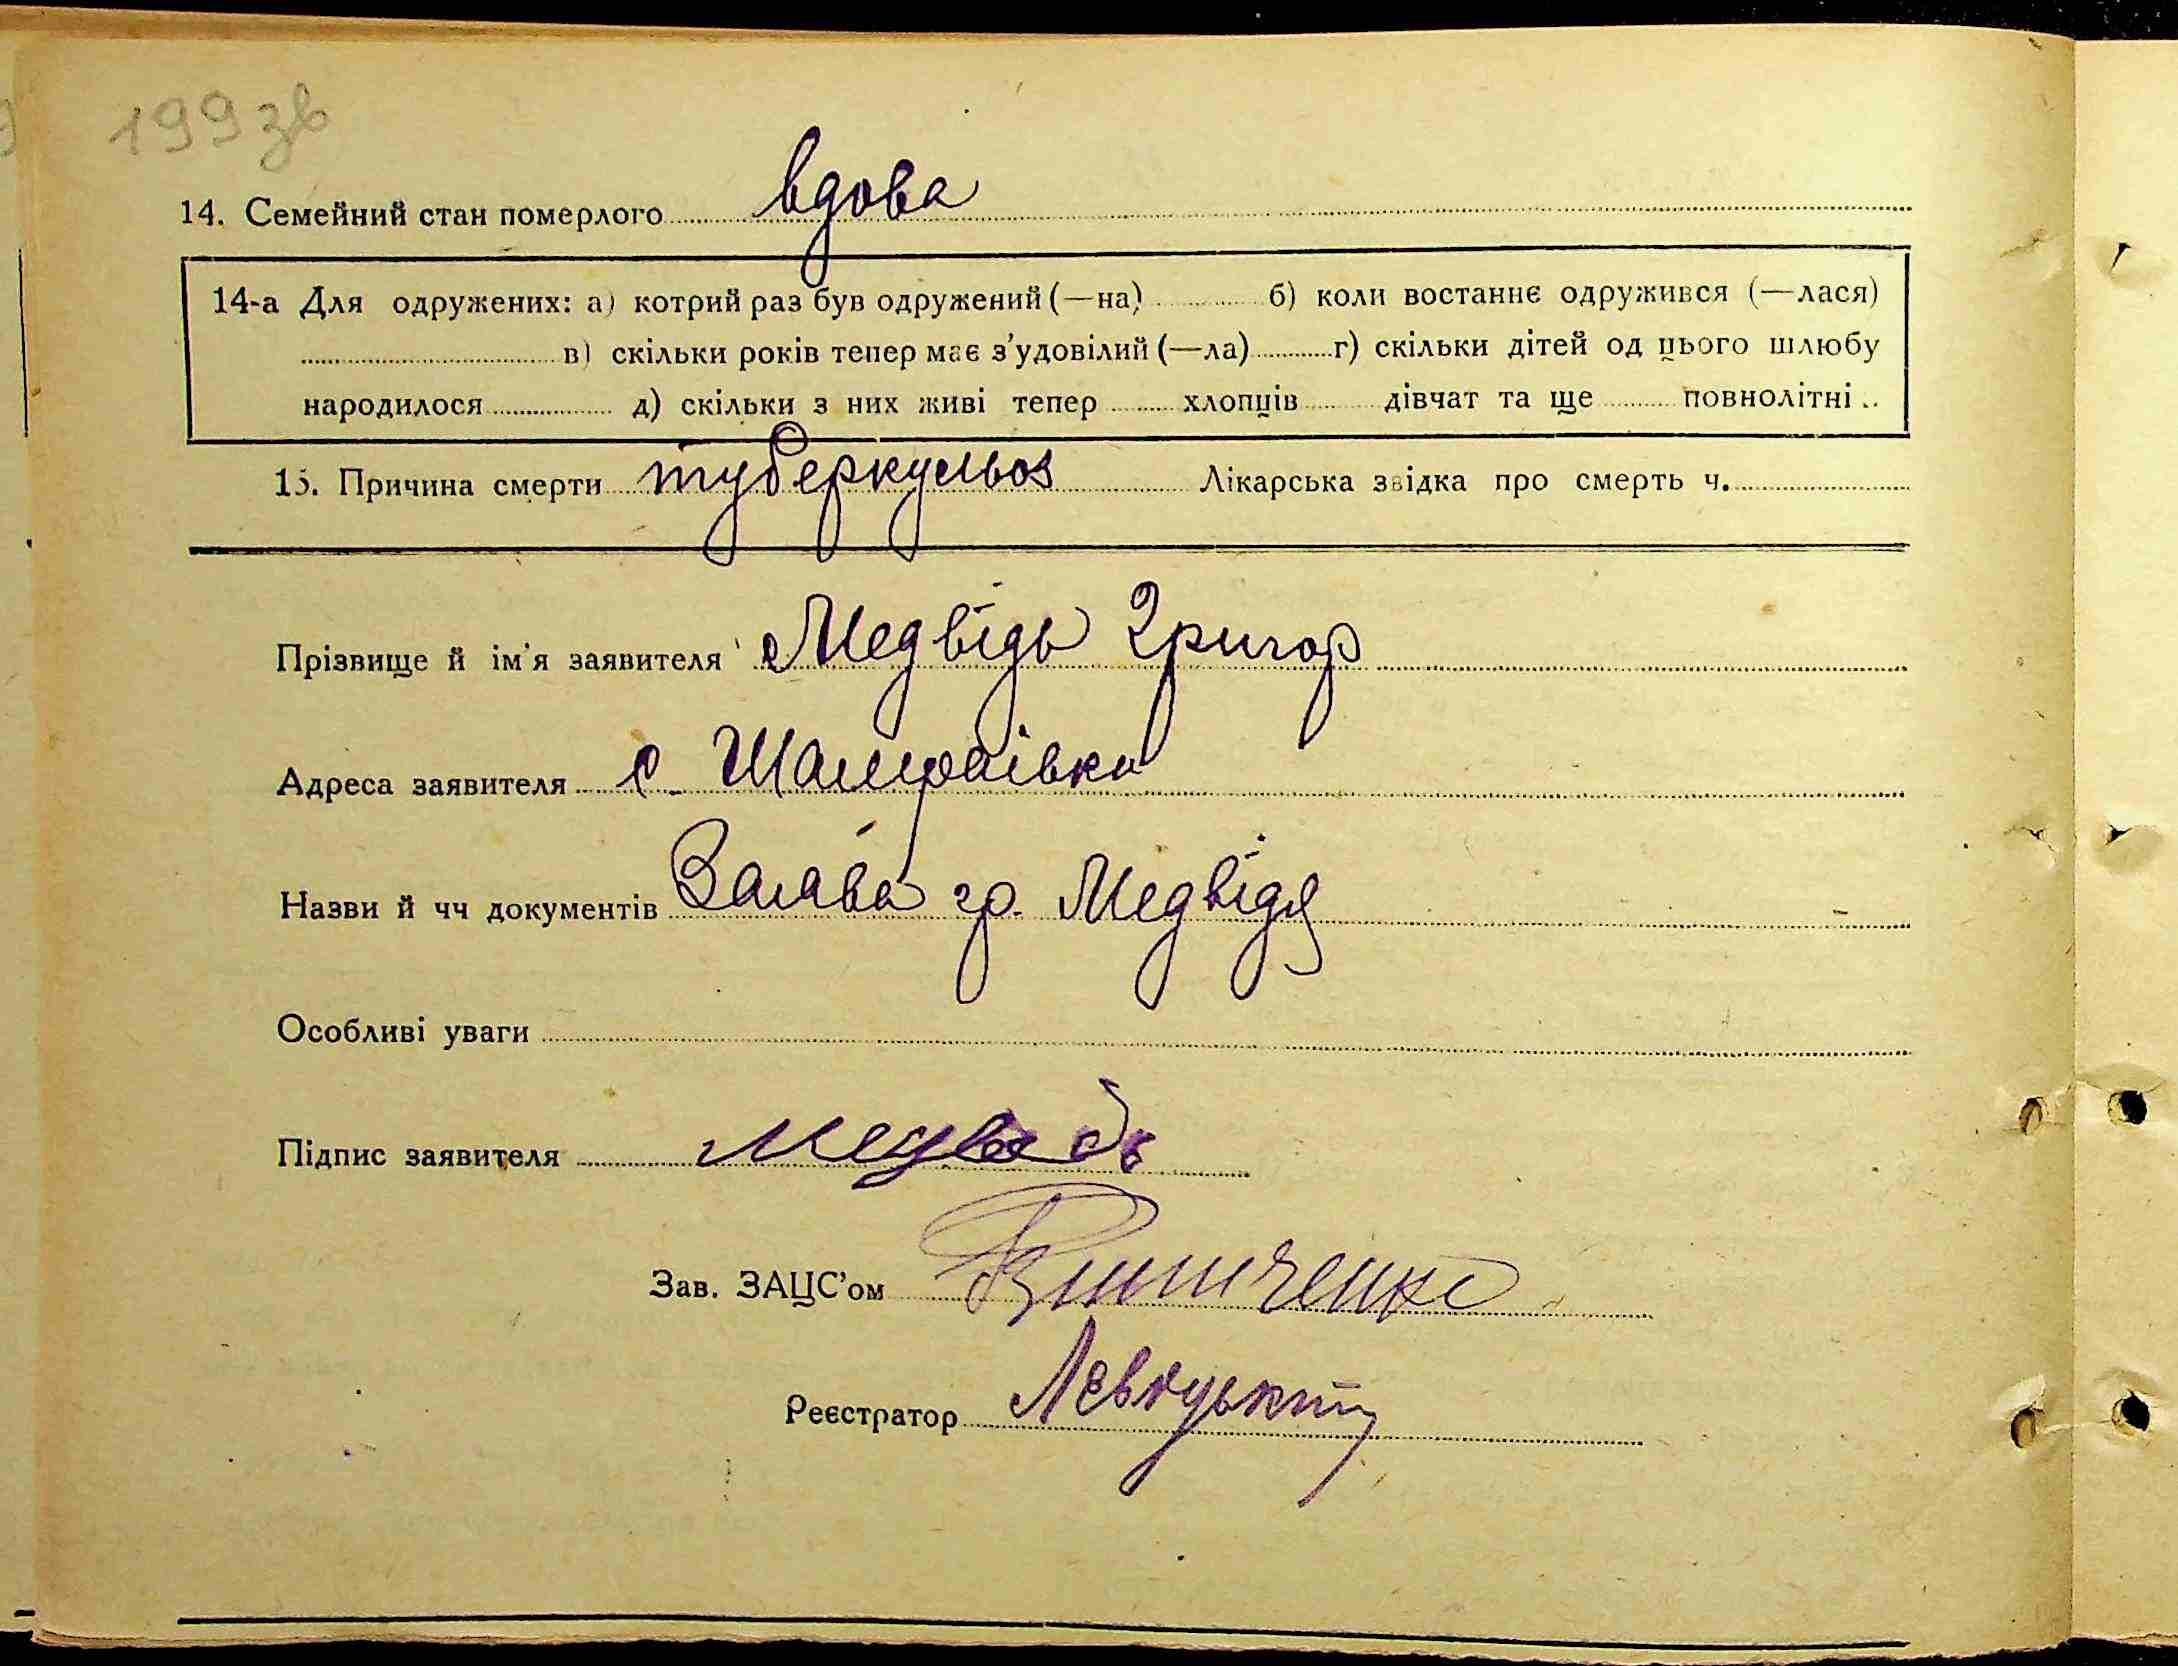 199 зв
14. Семейний стан померлого вдова
14-а Для одружених: а) котрий раз був одружений (—на) б) коли востаннє одружився (—лася)
в) скільки років тепер має з'удовілий (—ла) г) скільки дітей од цього шлюбу
народилося д) скільки з них живі тепер хлопців дівчат та ще повнолітні
15. Причина смерти туберкульоз Лікарська звідка про смерть ч.
Прізвище й ім'я заявителя Медвідь Григор
Адреса заявителя с. Шамраївка
Назви й чч документів Заява гр. Медвідя
Особливі уваги
Підпис заявителя Медвідь
Зав. ЗАЦС'ом Винниченко
Реєстратор